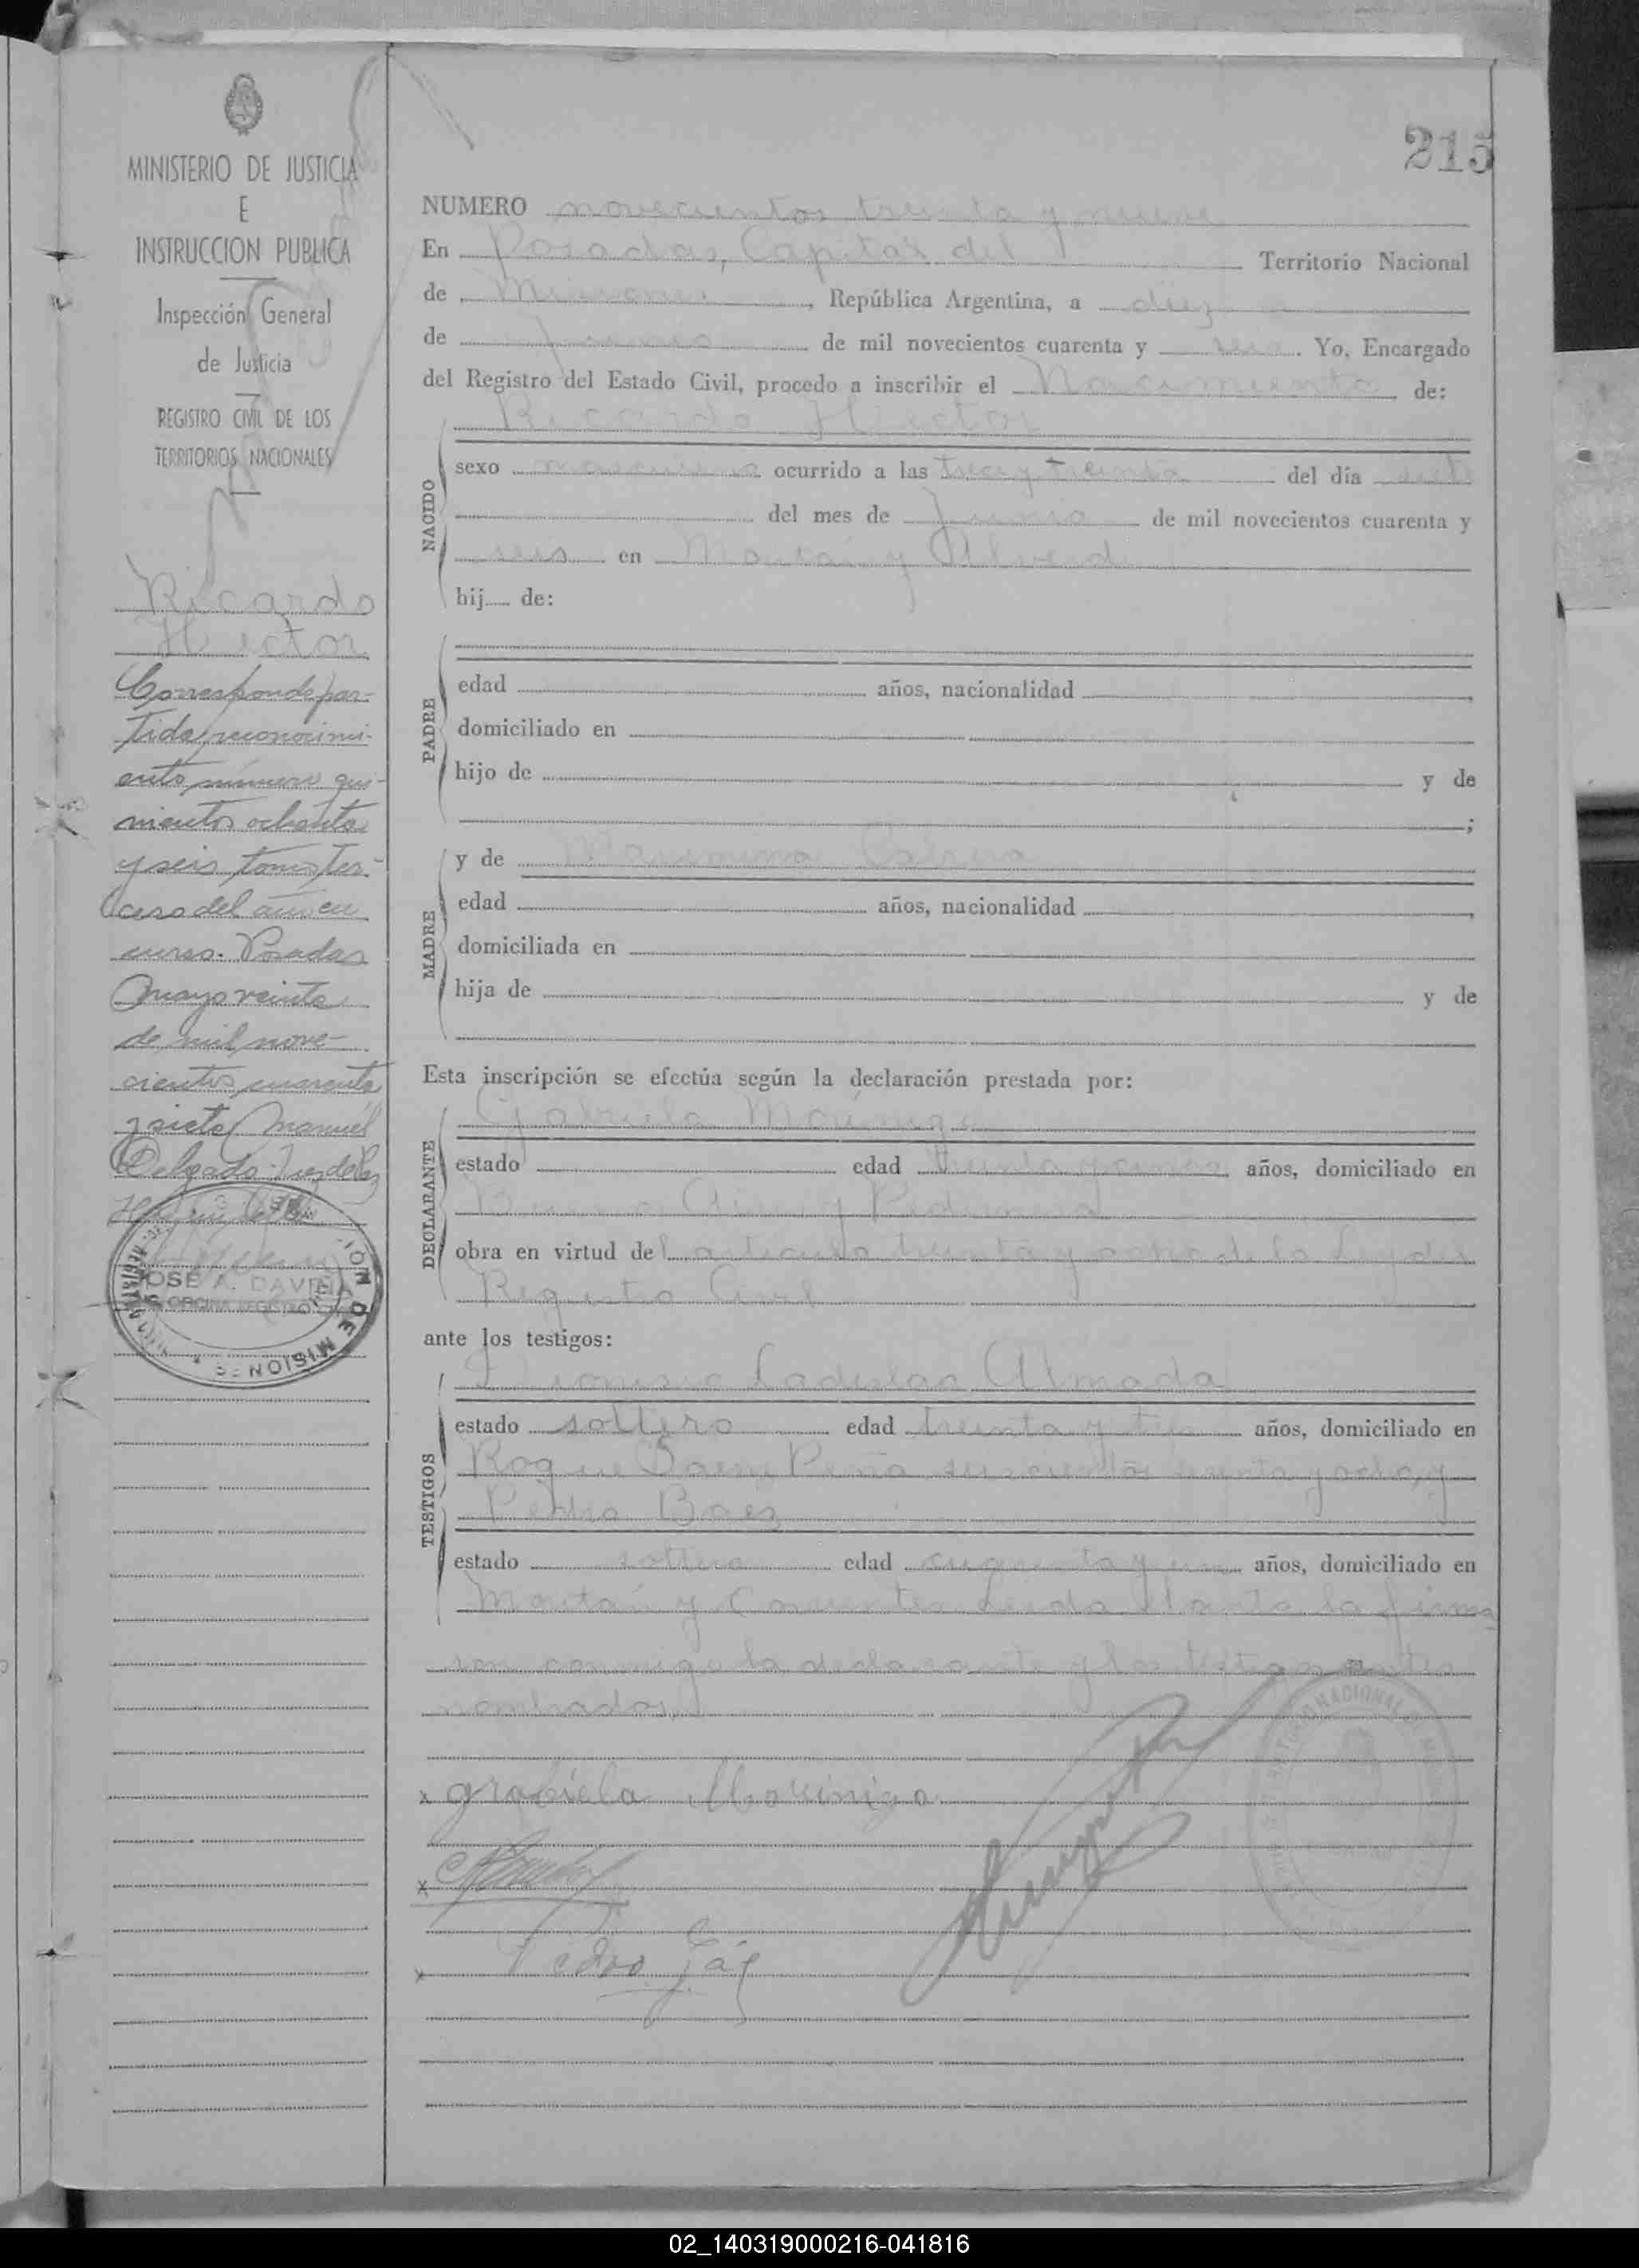 MINISTERIO DE JUSTICIA
E
INSTRUCCION PUBLICA
Inspección General
de Justicia
REGISTRO CIVIL DE LOS
TERRITORIOS NACIONALES
Ricardo
Hector
Corresponde par-
tida reconocimi-
ento número qui-
nientos ochenta
y seis tomo ter-
cero del año en
curso. Posadas
Mayo veinte
de mil nove-
cientos cuarenta
y siete Manuel
Delgado Juez de Paz
JOSE A. DAVIÑA
MISIONES
215
NUMERO novecientos treinta y nueve
En Posadas, Capital del Territorio Nacional
de Misiones, República Argentina, a diez
de Junio de mil novecientos cuarenta y seis. Yo, Encargado
del Registro del Estado Civil, procedo a inscribir el Nacimiento de:
Ricardo Hector
NACIDO
sexo masculino ocurrido a las trece y treinta del día siete
del mes de Junio de mil novecientos cuarenta y
seis en y
hij de:
PADRE
edad años, nacionalidad
domiciliado en
hijo de y de
;
MADRE
y de Maximina Cabrera
edad años, nacionalidad
domiciliada en
hija de y de
Esta inscripción se efectúa según la declaración prestada por:
DECLARANTE
Gabriela Morinigo
estado edad treinta y cinco años, domiciliado en
Buenos Aires y Piedrabuena
obra en virtud del artículo treinta y ocho de la Ley del
Registro Civil
ante los testigos:
TESTIGOS
Dionisio Ladislao Almada
estado soltero edad treinta y tres años, domiciliado en
Roque Saenz Peña seiscientos treinta y ocho, y
Pedro Baez
estado soltero edad cuarenta y un años, domiciliado en
y Corrientes. Leida el acta la firma
ron conmigo la declarante y los testigos antes
nombrados.
x grabiela Morinigo
x
x Pedro
02_140319000216-041816